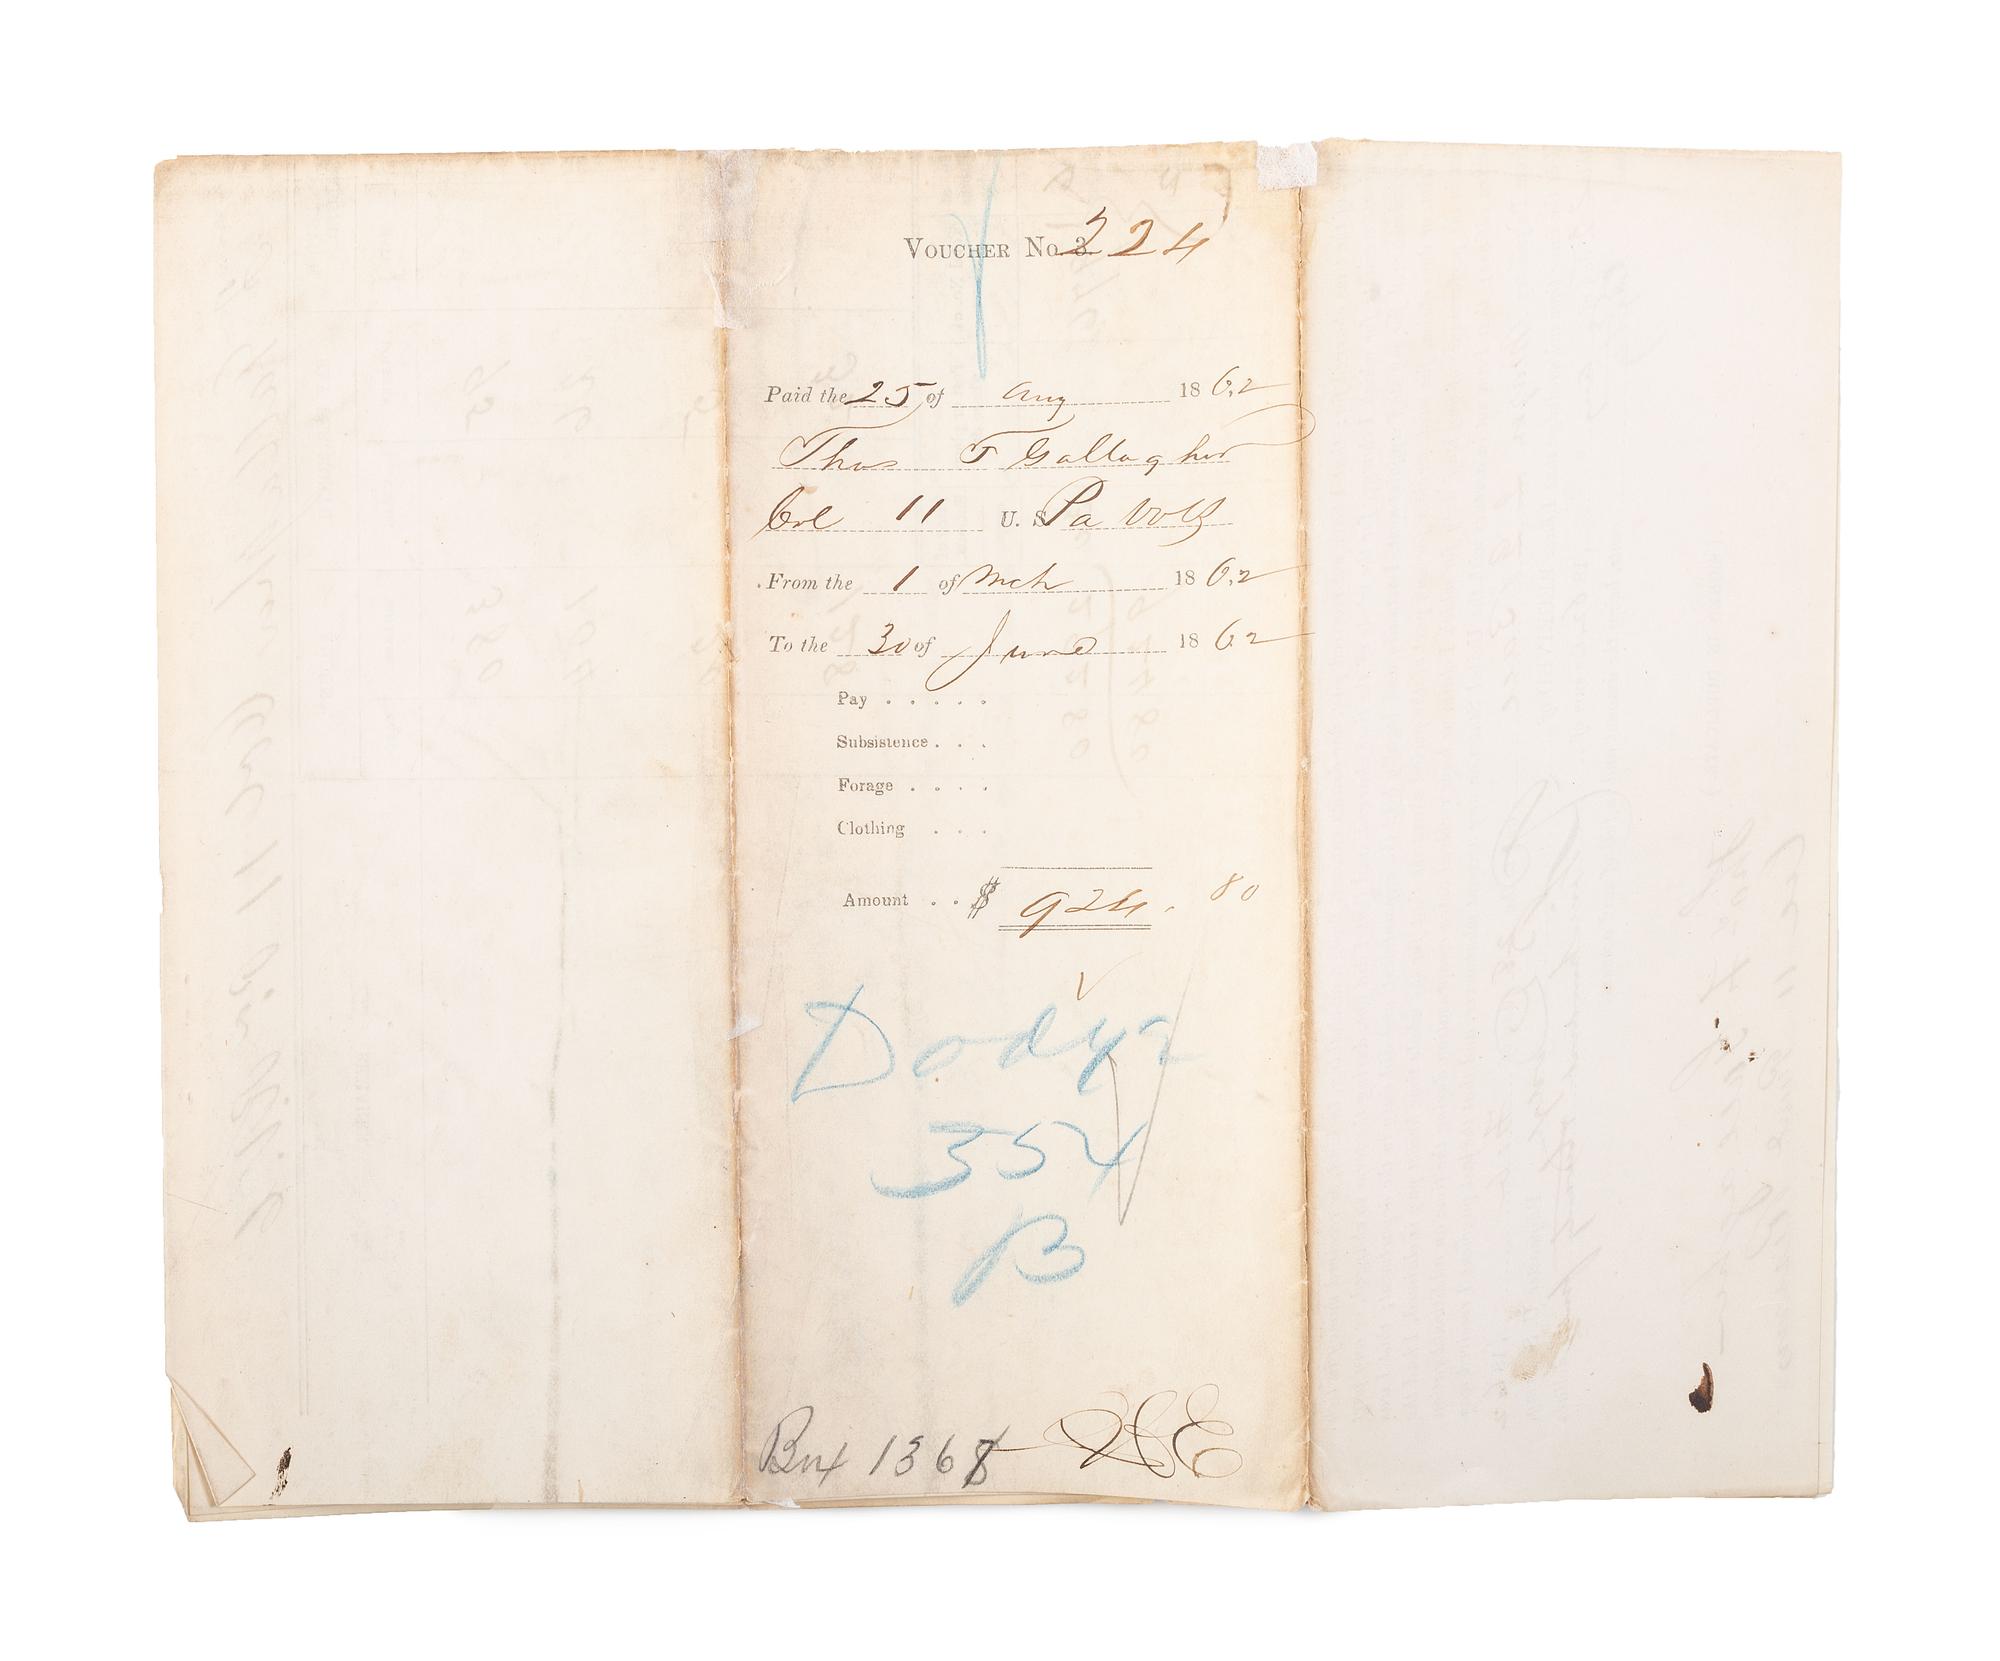 VOUCHER No. 3. 224
Paid the 25 of Aug 1862
Thos F Gallagher
Col 11 U. S. Pa Vols
From the 1 of Mch 1862
To the 30 of June 1862
Pay . . . . .
Subsistence . . .
Forage . . . .
Clothing . . .
Amount . . $ 924. 80
354
B
Box 1368